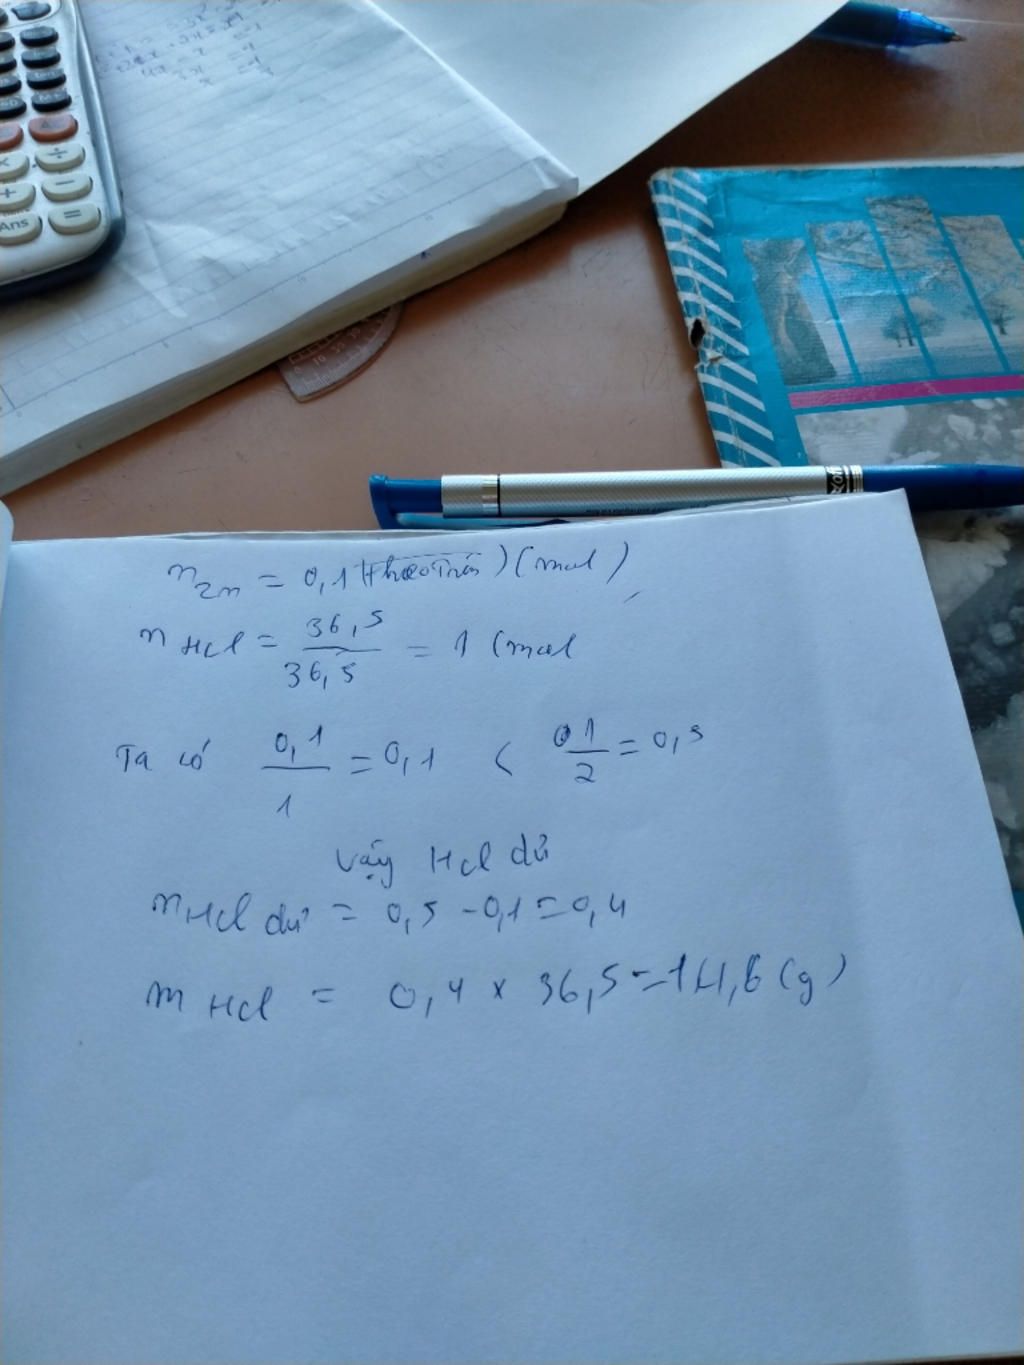 Ans
n Zn = 0,1 (theo trên) (mol)
n HCl = 36,5 / 36,5 = 1 (mol
Ta có 0,1 / 1 = 0,1 < 01 / 2 = 0,5
Vậy HCl dư
n HCl dư = 0,5 - 0,1 = 0,4
m HCl = 0,4 x 36,5 = 14,6 (g)